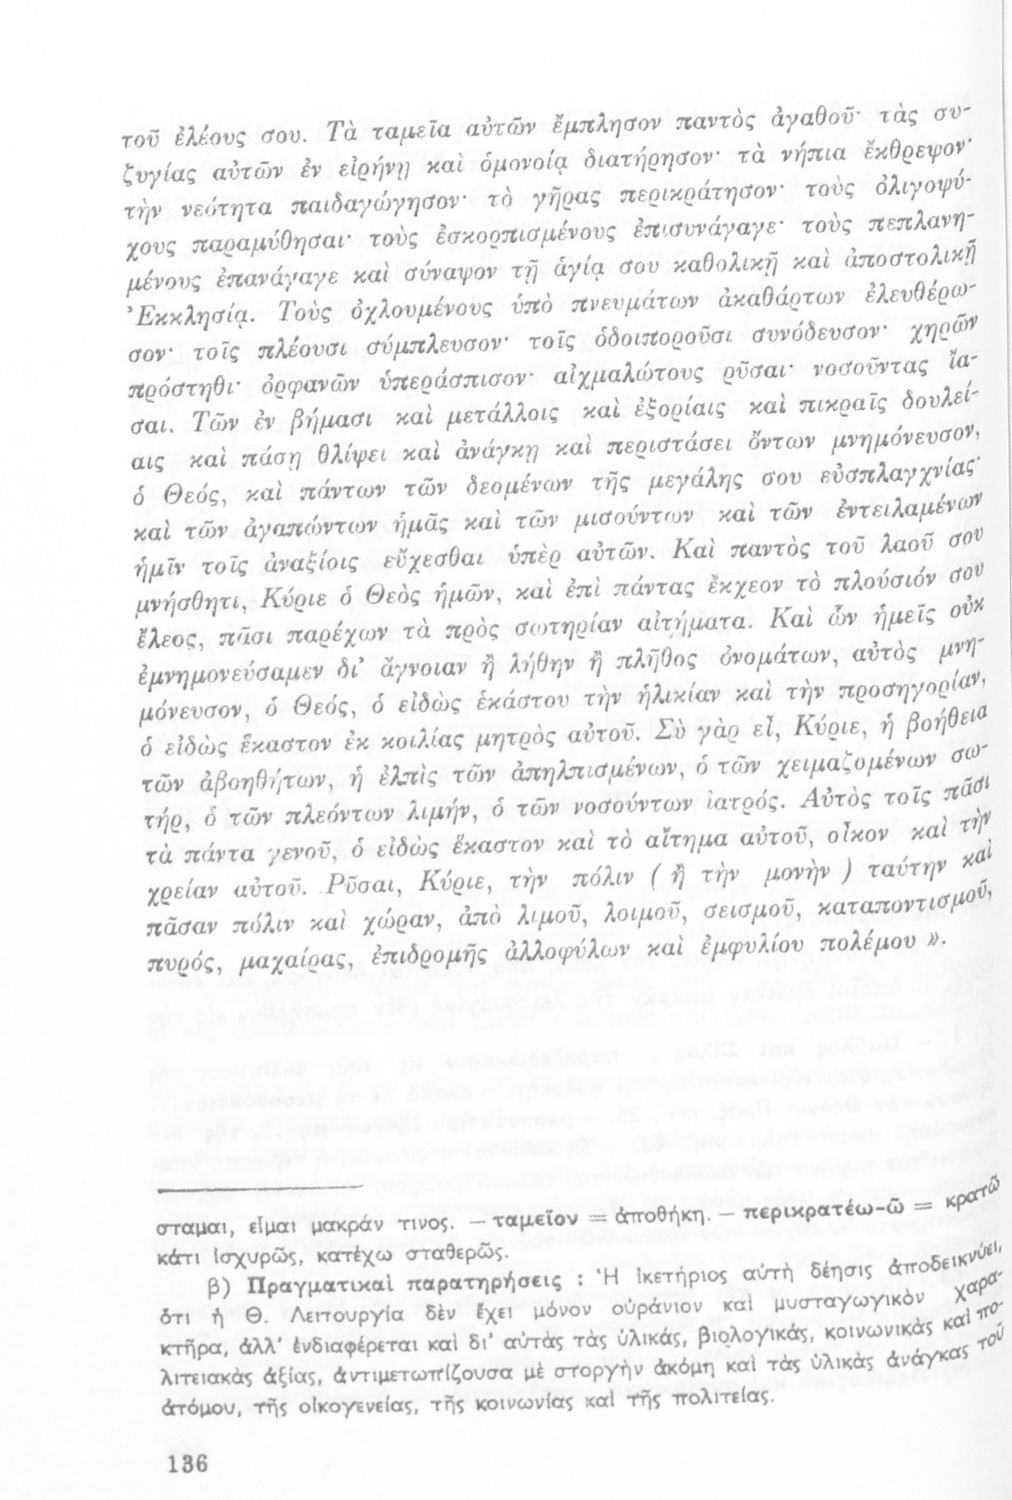 τοῦ ἐλέους σου. Τὰ ταμεῖα αὐτῶν ἔμπλησον παντὸς ἀγαθοῦ· τὰς συ-
ζυγίας αὐτῶν ἐν εἰρήνῃ καὶ ὁμονοίᾳ διατήρησον· τὰ νήπια ἔκθρεψον·
τὴν νεότητα παιδαγώγησον· τὸ γῆρας περικράτησον· τοὺς ὀλιγοψύ-
χους παραμύθησαι· τοὺς ἐσκορπισμένους ἐπισυνάγαγε· τοὺς πεπλανη-
μένους ἐπανάγαγε καὶ σύναψον τῇ ἁγίᾳ σου καθολικῇ καὶ ἀποστολικῇ
Ἐκκλησίᾳ. Τοὺς ὀχλουμένους ὑπὸ πνευμάτων ἀκαθάρτων ἐλευθέρω-
σον· τοῖς πλέουσι σύμπλευσον· τοῖς ὁδοιποροῦσι συνόδευσον· χηρῶν
πρόστηθι· ὀρφανῶν ὑπεράσπισον· αἰχμαλώτους ρῦσαι· νοσοῦντας ἴα-
σαι. Τῶν ἐν βήμασι καὶ μετάλλοις καὶ ἐξορίαις καὶ πικραῖς δουλεί-
αις καὶ πάσῃ θλίψει καὶ ἀνάγκῃ καὶ περιστάσει ὄντων μνημόνευσον,
ὁ Θεός, καὶ πάντων τῶν δεομένων τῆς μεγάλης σου εὐσπλαγχνίας·
καὶ τῶν ἀγαπώντων ἡμᾶς καὶ τῶν μισούντων καὶ τῶν ἐντειλαμένων
ἡμῖν τοῖς ἀναξίοις εὔχεσθαι ὑπὲρ αὐτῶν. Καὶ παντὸς τοῦ λαοῦ σου
μνήσθητι, Κύριε ὁ Θεὸς ἡμῶν, καὶ ἐπὶ πάντας ἔκχεον τὸ πλούσιόν σου
ἔλεος, πᾶσι παρέχων τὰ πρὸς σωτηρίαν αἰτήματα. Καὶ ὧν ἡμεῖς οὐκ
ἐμνημονεύσαμεν δι' ἄγνοιαν ἢ λήθην ἢ πλῆθος ὀνομάτων, αὐτὸς μνη-
μόνευσον, ὁ Θεός, ὁ εἰδὼς ἑκάστου τὴν ἡλικίαν καὶ τὴν προσηγορίαν,
ὁ εἰδὼς ἕκαστον ἐκ κοιλίας μητρὸς αὐτοῦ. Σὺ γὰρ εἶ, Κύριε, ἡ βοήθεια
τῶν ἀβοηθήτων, ἡ ἐλπὶς τῶν ἀπηλπισμένων, ὁ τῶν χειμαζομένων σω-
τήρ, ὁ τῶν πλεόντων λιμήν, ὁ τῶν νοσούντων ἰατρός. Αὐτὸς τοῖς πᾶσι
τὰ πάντα γενοῦ, ὁ εἰδὼς ἕκαστον καὶ τὸ αἴτημα αὐτοῦ, οἶκον καὶ τὴν
χρείαν αὐτοῦ. Ρῦσαι, Κύριε, τὴν πόλιν ( ἢ τὴν μονὴν ) ταύτην καὶ
πᾶσαν πόλιν καὶ χώραν, ἀπὸ λιμοῦ, λοιμοῦ, σεισμοῦ, καταποντισμοῦ,
πυρός, μαχαίρας, ἐπιδρομῆς ἀλλοφύλων καὶ ἐμφυλίου πολέμου ».
σταμαι, εἶμαι μακράν τινος. — ταμεῖον = ἀποθήκη. — περικρατέω-ῶ = κρατῶ
κάτι ἰσχυρῶς, κατέχω σταθερῶς.
β) Πραγματικαὶ παρατηρήσεις : Ἡ ἱκετήριος αὐτὴ δέησις ἀποδεικνύει,
ὅτι ἡ Θ. Λειτουργία δὲν ἔχει μόνον οὐράνιον καὶ μυσταγωγικὸν χαρα-
κτῆρα, ἀλλ' ἐνδιαφέρεται καὶ δι' αὐτὰς τὰς ὑλικάς, βιολογικάς, κοινωνικὰς καὶ πο-
λιτειακὰς ἀξίας, ἀντιμετωπίζουσα μὲ στοργὴν ἀκόμη καὶ τὰς ὑλικὰς ἀνάγκας τοῦ
ἀτόμου, τῆς οἰκογενείας, τῆς κοινωνίας καὶ τῆς πολιτείας.
136